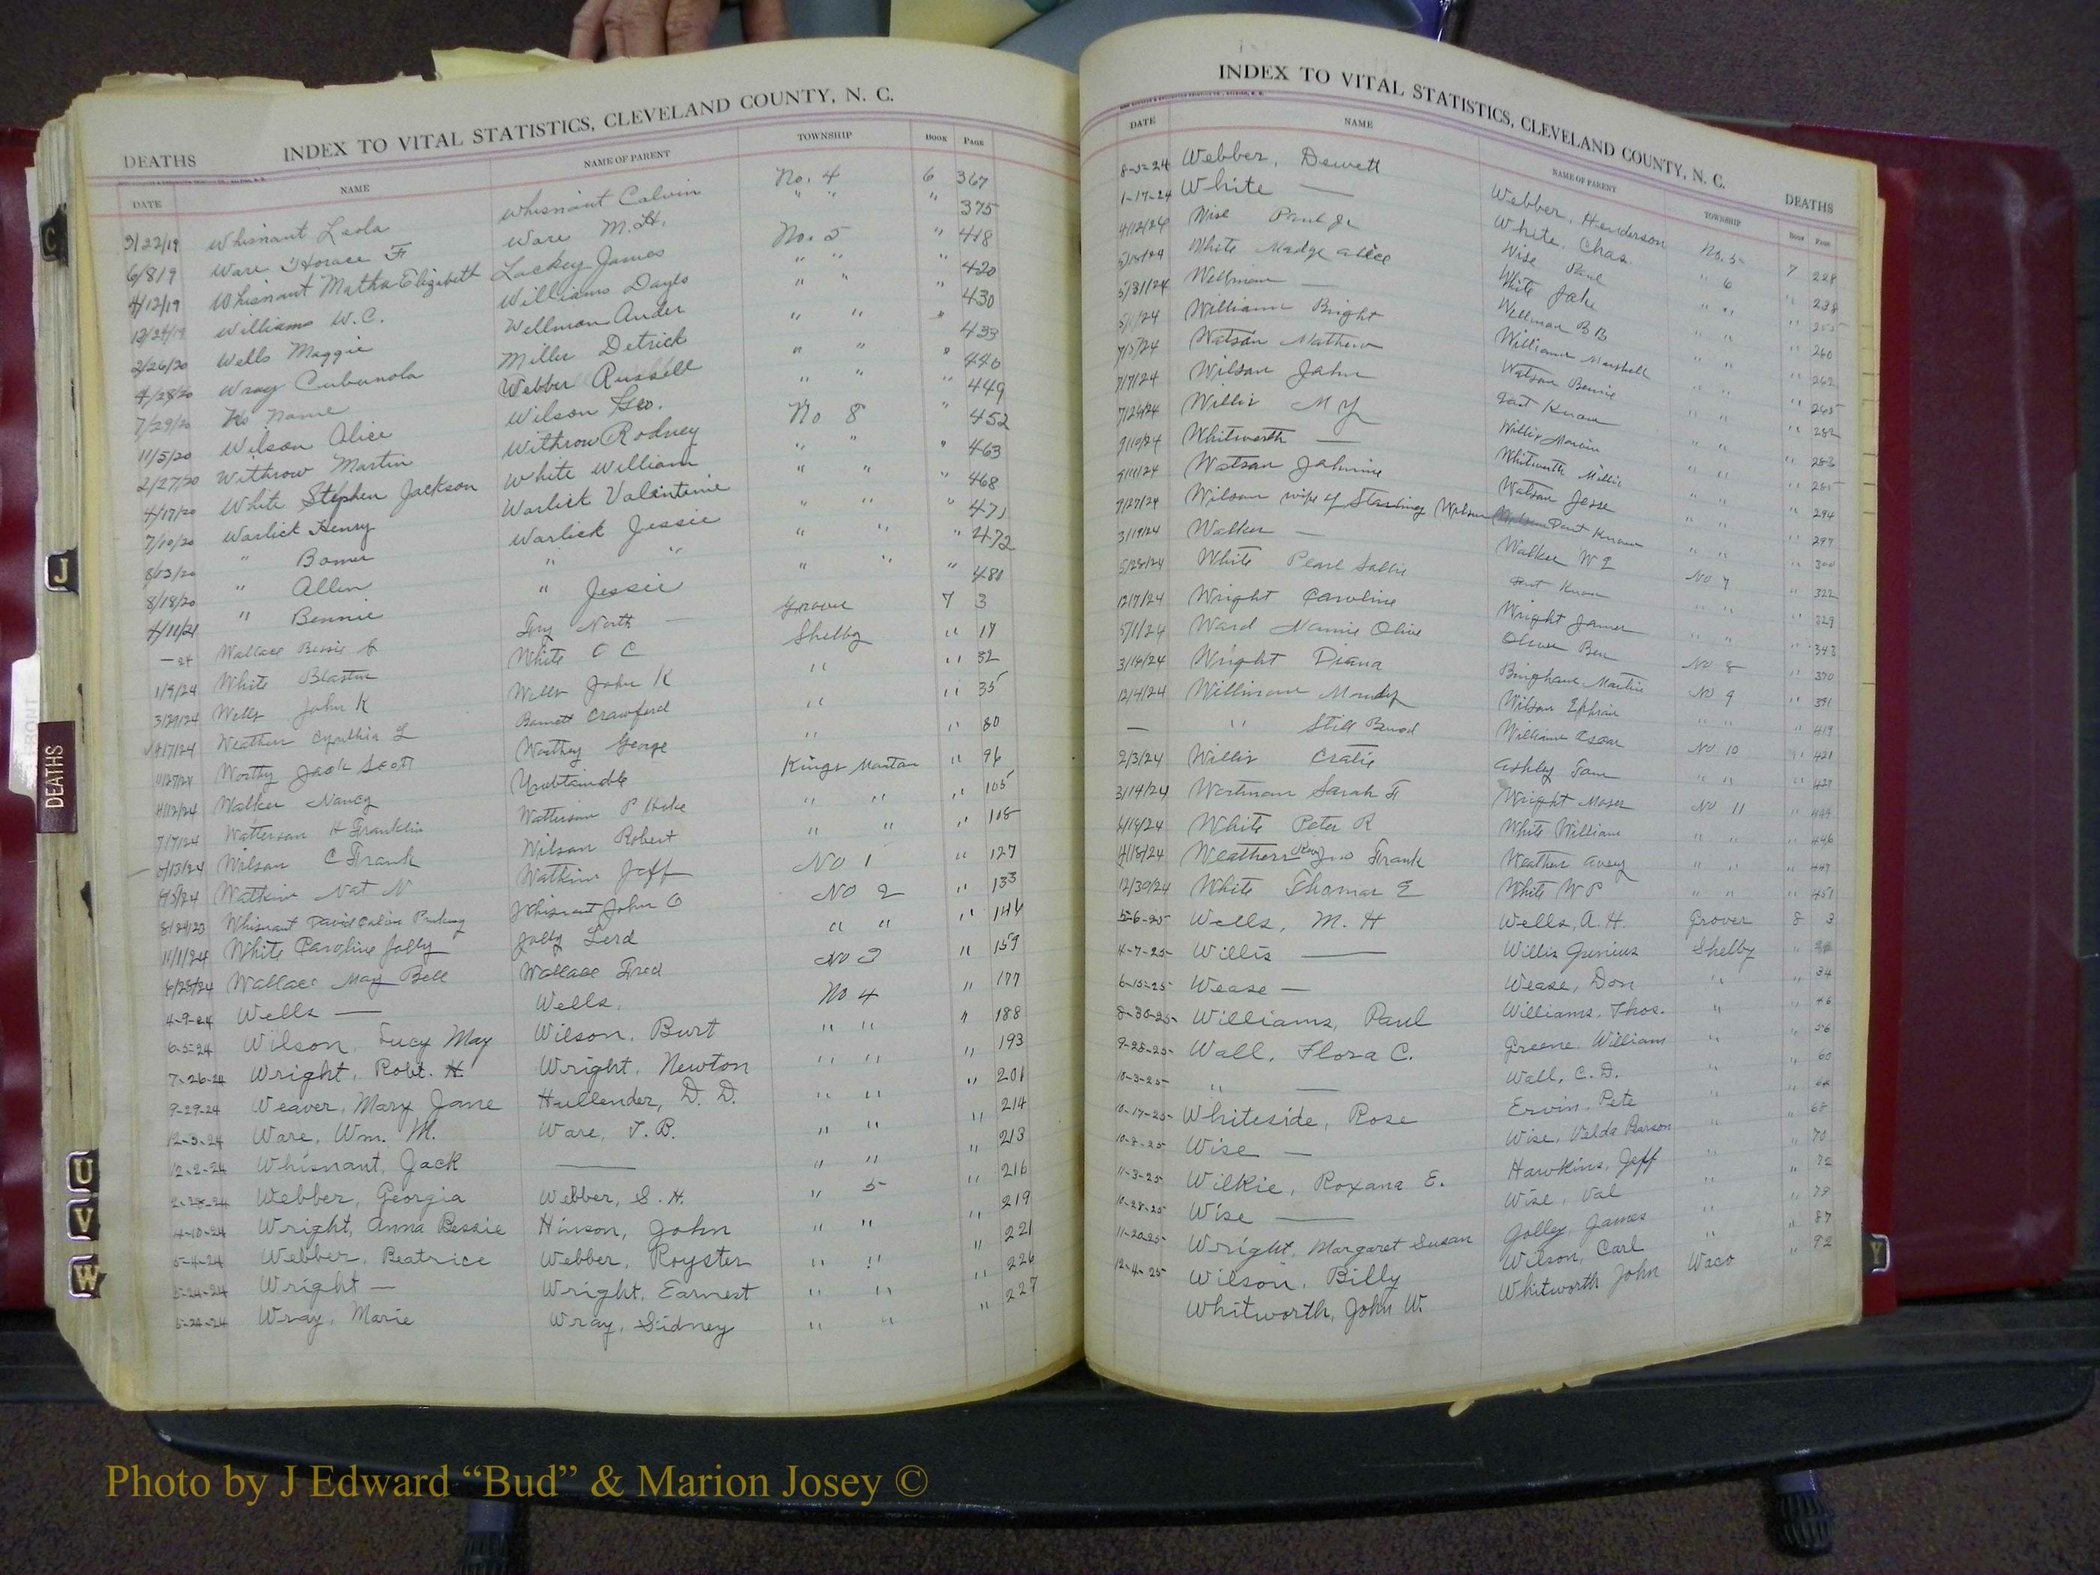 INDEX TO VITAL STATISTICS, CLEVELAND COUNTY, N. C.
DEATHS
DATE NAME NAME OF PARENT TOWNSHIP BOOK PAGE
3/22/19 Whisnant Leola Whisnant Calvin No. 4 6 367
6/8/19 Ware Horace F Ware M.H. " " " 375
4/12/19 Whisnant Matha Elizibeth Lackey James No. 5 " 418
Williams W.C. Williams " " " 420
2/26/20 Wells Maggie Wellmon Ander " " " 430
4/28/20 Wray Miller Detrick " " " 433
7/29/20 No Name Webber Russell " " " 440
11/5/20 Wilson Alice Wilson Geo. " " " 449
2/27/20 Withrow Martin Withrow Rodney No 8 " 452
4/17/20 White Stephen Jackson White William " " " 463
7/10/20 Warlick Henry Warlick Valentine " " " 468
8/13/20 " Bomer Warlick Jessie " " " 471
8/18/20 " Allen " " " " " 472
4/11/21 " Bennie " Jessie " " " 481
—24 Wallace Bessie C North — Grover 7 3
1/9/24 White White C C Shelby " 17
3/29/24 Wells John K Wells John K " " 32
4/7/24 Weathers Cynthia L Barnett Crawford " " 35
11/27/24 Worthy Jack Scott Worthy George " " 80
4/12/24 Walker Nancy Unobtainable Kings Montan " 96
7/17/24 Watterson H Franklin Watterson P " " " 105
Wilson C Frank Wilson Robert " " "
Watkins Nat N Watkins Jeff No 1 " 127
8/24/23 Whisnant David Whisnant John O No 2 " 133
11/1/24 White Caroline Jolly Jolly " " " 146
6/28/24 Wallace May Bell Wallace Fred No 3 " 159
4-9-24 Wells — Wells, No 4 " 177
6-5-24 Wilson, Lucy May Wilson, Burt " " " 188
7-26-24 Wright, Robt. H. Wright, Newton " " " 193
9-29-24 Weaver, Mary Jane Hullender, D. D. " " " 201
12-3-24 Ware, Wm. M. Ware, T. B. " " " 214
12-2-24 Whisnant, Jack — " " " 213
2-28-24 Webber, Georgia Webber, S. H. " 5 " 216
4-10-24 Wright, Anna Bessie Hinson, John " " " 219
5-4-24 Webber, Beatrice Webber, Royster " " " 221
5-24-24 Wright — Wright, Earnest " " " 226
5-24-24 Wray, Marie Wray, Sidney " " " 227
INDEX TO VITAL STATISTICS, CLEVELAND COUNTY, N. C.
DEATHS
DATE NAME NAME OF PARENT TOWNSHIP BOOK PAGE
8-5-24 Webber, Dewett Webber, Henderson No. 5 7 228
1-17-24 White — White, Chas " 6 " 238
4/12/24 Wise Paul Jr Wise Paul " " " 255
5/18/24 White Madge Alice White Jake " " " 260
5/31/24 Wellmon — Wellman B B " " " 262
5/1/24 Williams Bright Williams Marshall " " " 265
7/5/24 Watson Mathew Watson Bennie " " " 282
7/7/24 Wilson John Dont Know " " " 283
7/26/24 Willis M Y Willis Marvin " " " 285
9/10/24 Whitworth — Whitworth Millie " " " 294
9/11/24 Watson Johnnie Watson Jesse " " " 297
9/27/24 Wilson wife of Wilson Dont Know " " " 300
3/19/24 Walker — Walker W No 7 " 322
5/28/24 White Pearl Sallie Dont Know " " " 329
12/7/24 Wright Caroline Wright James " " " 343
5/1/24 Ward Nannie Olive Oliver Ben No 8 " 370
3/14/24 Wright Diana Bingham Martin No 9 " 391
12/14/24 Williams Williams " " " 419
— " Still Bornd Williams Oscar No 10 " 421
2/3/24 Willis Cratie Ashley Tom " " " 427
3/14/24 Wortman Sarah F Wright Moses No 11 "
6/19/24 White Peter R White William " " " 446
4/18/24 Weathers Rev Jno Frank Weathers " " " 447
12/30/24 White Thomas E White W P " " " 451
5-6-25 Wells, M. H Wells, A. H. Grover 8 3
4-7-25 Willis — Willis Junius Shelby "
6-15-25 Wease — Wease, Don " " 34
8-30-25 Williams, Paul Williams, Thos. " " 46
9-25-25 Wall, Flora C. Greene, William " " 56
10-3-25 " — Wall, C. D. " " 60
10-17-25 Whiteside, Rose Ervin, Pete " "
10-8-25 Wise — Wise, Valda Parson " " 68
11-3-25 Wilkie, Roxana E. Hawkins, Jeff " " 70
10-28-25 Wise — Wise, Val " " 72
11-20-25 Wright, Margaret Susan Jolley, James " " 79
12-4-25 Wilson, Billy Wilson, Carl " " 87
Whitworth, John W. Whitworth John Waco " 92
C
J
DEATHS
U
V
W
Y
Photo by J Edward “Bud” & Marion Josey ©